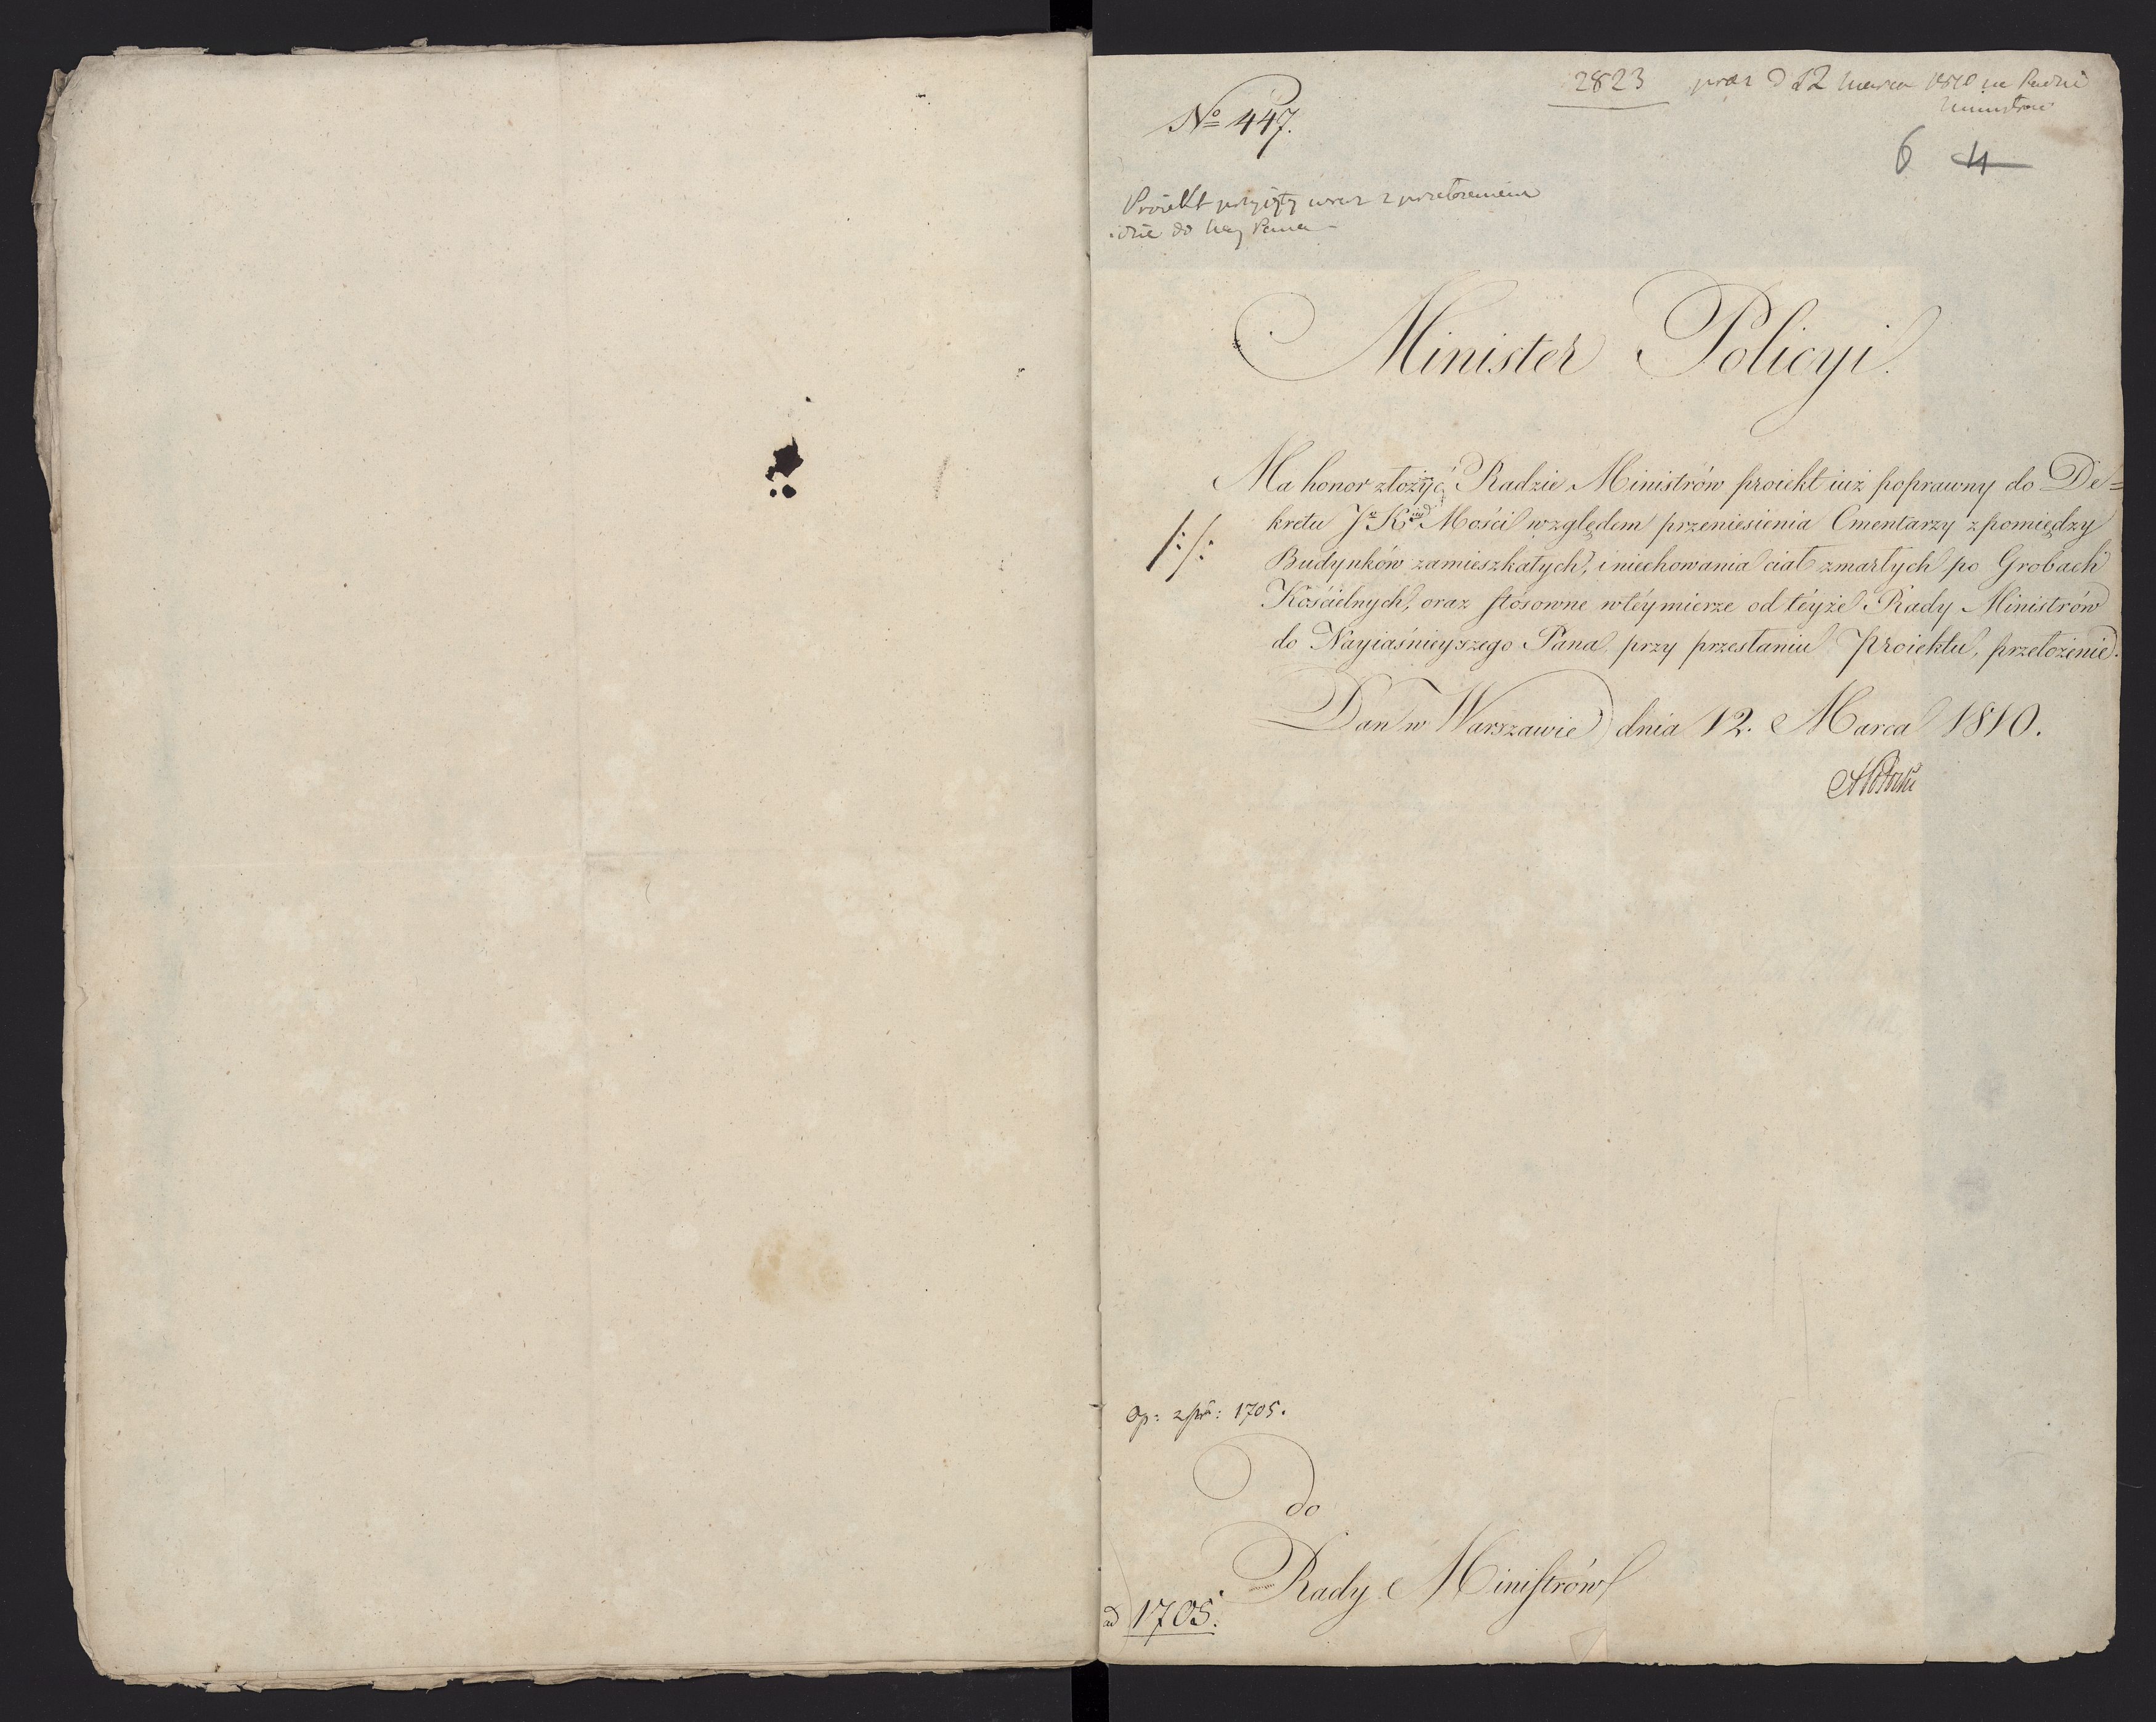 2823 praes d 12 marca 1810 na Radzie
Ministrów
No 447.
6 4
Proiekt przyięty wraz z przełożeniem
idzie do Nay Pana –
Minister Policyi.
Ma honor złożyć Radzie Ministrów proiekt iuż poprawny do De=
kretu Jo Kr Mości względem przeniesienia Cmentarzy z pomiędzy
Budynków zamieszkałych, i niechowania ciał zmarłych po Grobach
Kościelnych, oraz stósowne w téy mierze od téyże Rady Ministrów
do Nayiaśnieyszego Pana przy przesłaniu Proiektu, przełożenie.
/:/:
Dan w Warszawie dnia 12. Marca 1810.
APotocki
Op: z pr: 1705.
do
Rady Ministrów
ad 1705.